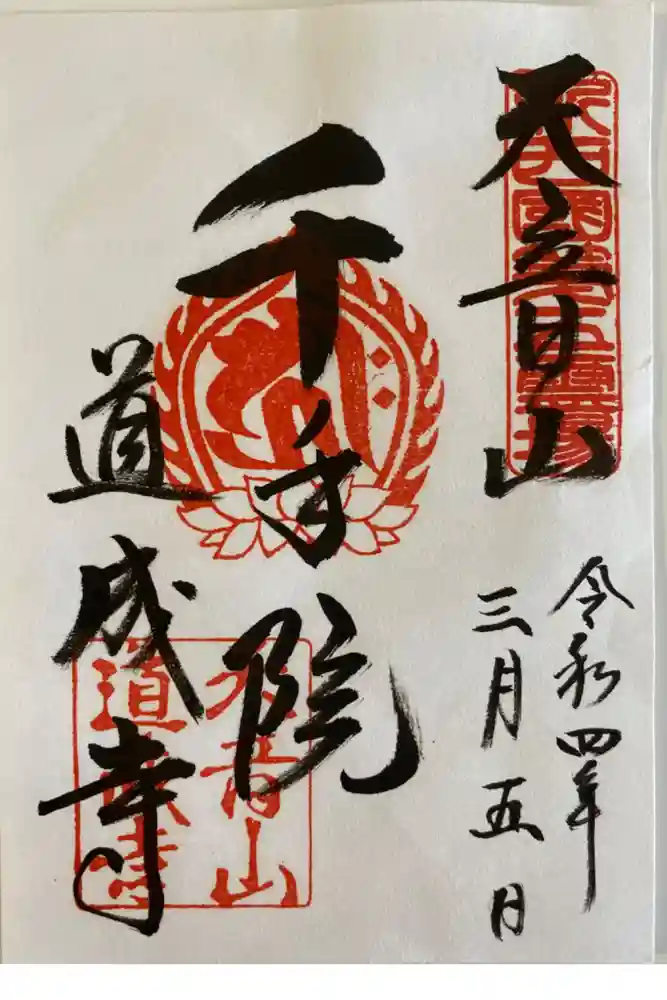 天音山
令和四年
三月五日
千手院
道成寺
天音山
道成寺